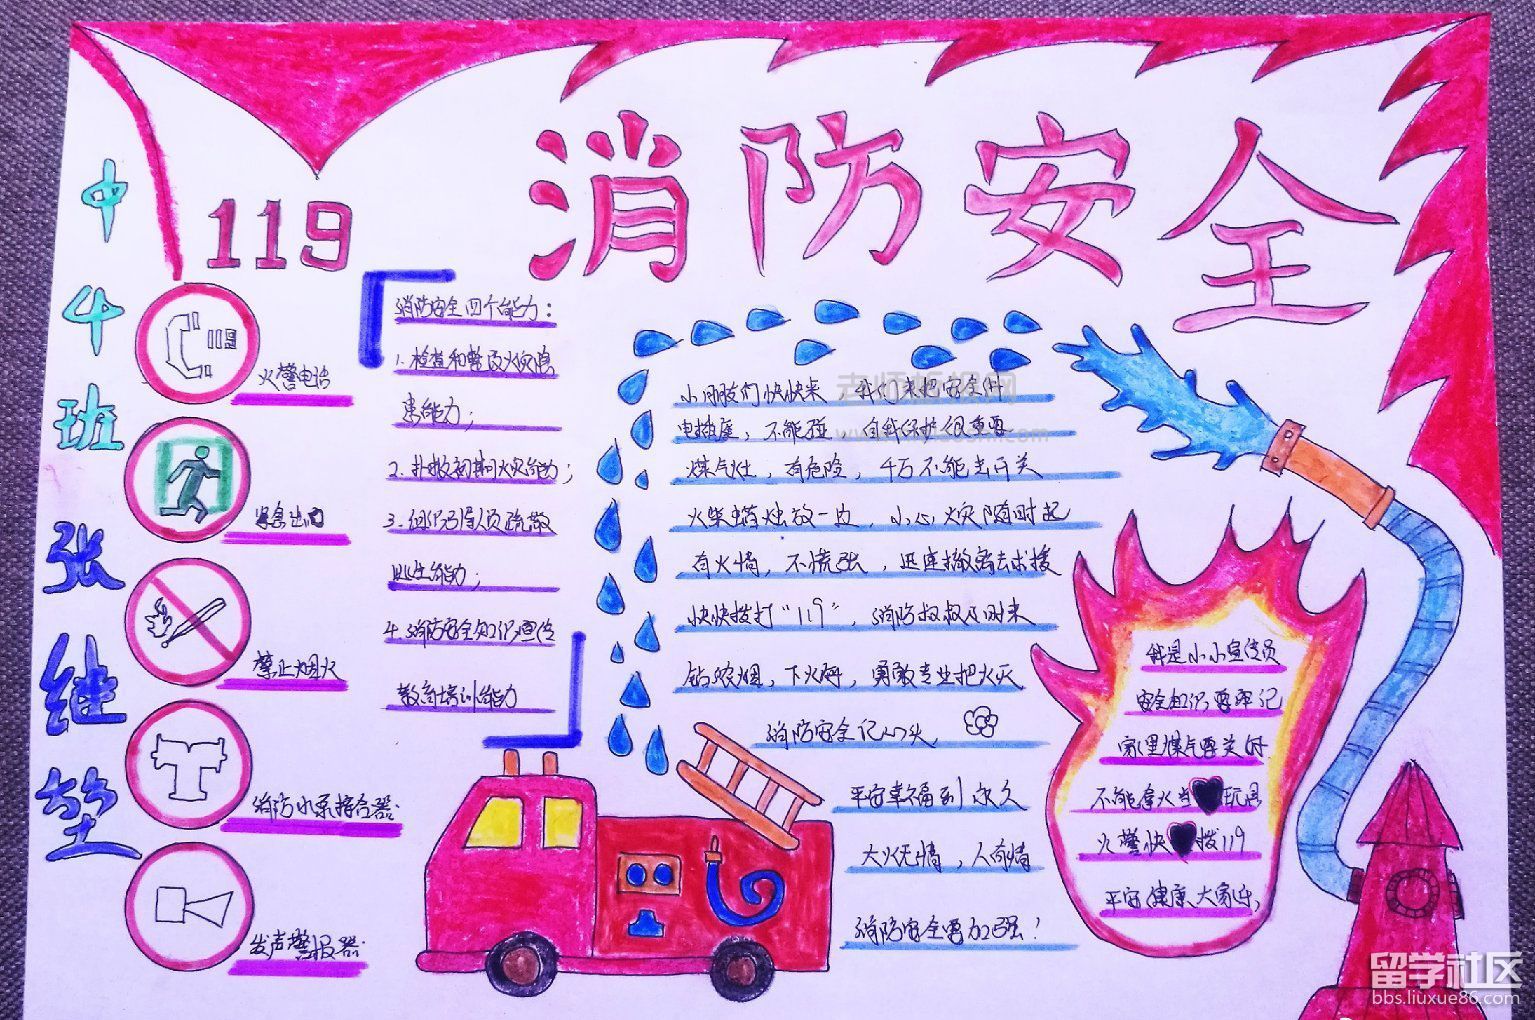 消防安全
119
中4班
张继堃
火警电话
紧急出口
禁止烟火
消防水泵接合器
发声警报器
消防安全四个能力：
1.检查和整改火灾隐
患能力；
2.扑救初期火灾能力；
3.组织引导人员疏散
逃生能力；
4.消防安全知识宣传
教育培训能力
小朋友们快快来 我们来把安全
电插座，不能碰 自我保护很重要
煤气灶，有危险，千万不能去开关
火柴蜡烛放一边，小心火灾随时起
有火情，不慌张，迅速撤离去求援
快快拨打“119”，消防叔叔及时来
钻浓烟，下火海，勇敢专业把火灭
消防安全记心头
平安幸福到永久
火无情，人有情
消防安全要加强！
我是小小宣传员
安全知识要牢记
家里煤气要关好
不能拿火当玩具
火警快拨119
平安健康大家乐
119
老师板报网
留学社区
bbs.liuxue86.com